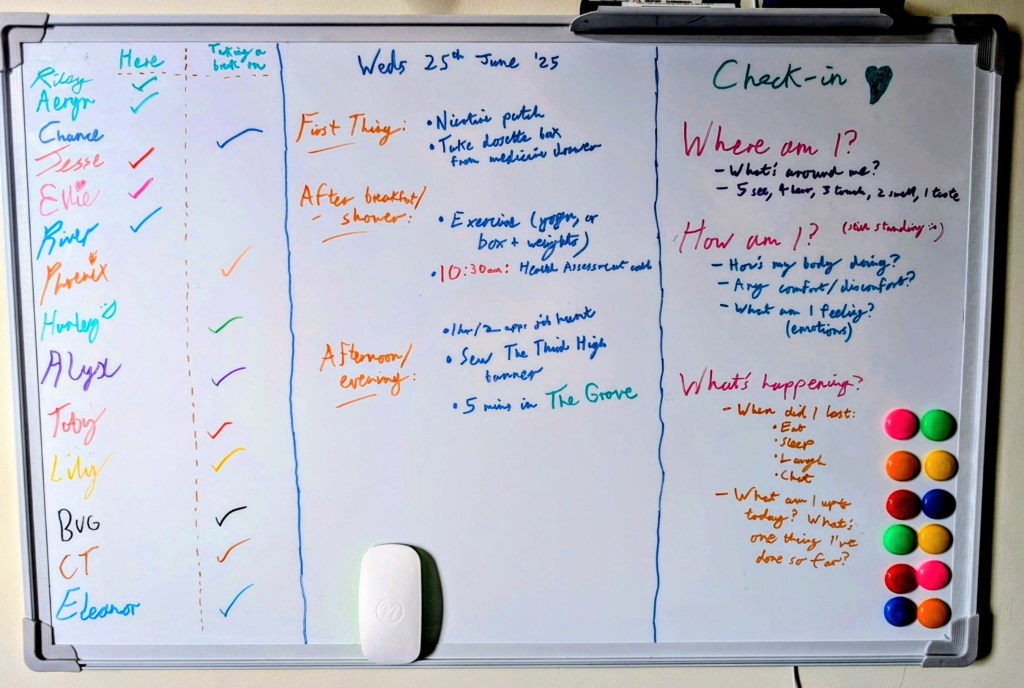 Here
Taking a
break rn
Riley ✓
Aeryn ✓
Chance ✓
Jesse ✓
Ellie ✓
River ✓
Phoenix ✓
Hurley ✓
Alyx ✓
Toby ✓
Lily ✓
BUG ✓
CT ✓
Eleanor ✓
Weds 25th June '25
First Thing:
• Nicotine patch
• Take dosette box
from medicine drawer
After breakfast/
shower:
• Exercise (yoga, or
box + weights)
• 10:30am: Health Assessment call
Afternoon/
evening:
• 1hr/2 apps job hunt
• Sew The Third High
banner
• 5 mins in The Grove
Check-in
Where am I?
- What's around me?
- 5 see, 4 hear, 3 touch, 2 smell, 1 taste
How am I? (still standing :))
- How's my body doing?
- Any comfort/discomfort?
- What am I feeling?
(emotions)
What's happening?
- When did I last:
• Eat
• Sleep
• Laugh
• Chat
- What am I upto
today? What's
one thing I've
done so far?